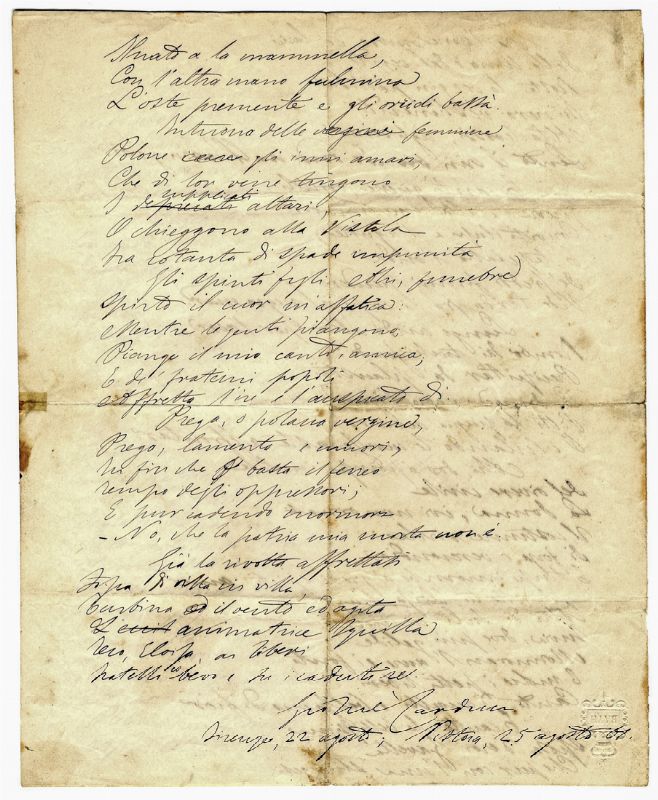 a la mammella,
Con l'altra mano fulmina
L'oste premente e gli orridi bassà.
Intuono delle vergini femmine
Polone gli inni amari,
Che di lor vene tingono
I deprecati supplicati altari,
O chieggono alla Vistola
Tra cotanta di spade impunità
Gli spinti figli. Ahi, funebre
Spirto il cuor m'affatica:
Mentre le genti piangono,
Piange il mio canto, amica,
E de' fratelli popoli
Affretta l'ire e l'auspicato dì.
Prega, o polona vergine,
Prega, lamenta e muori,
In fin che basta il ferreo
tempo degli oppressori;
E pur cadendo mormora
- No, che la patria mia morta non è.
Già la rivolta affrettasi
di villa in villa,
turbina ed il vento ed agita
L' animatrice squilla
Teco, Eloisa, ai liberi
fratelli bevo e su i caduti re.
Giosuè Carducci
Firenze, 22 agosto; Pistoia, 25 agosto